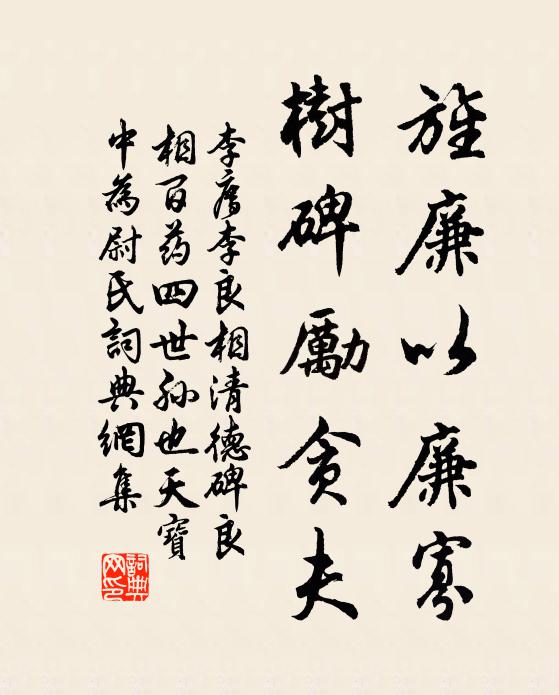 旌廉以廉寡
樹碑勵貪夫
李廌李良相清德碑良
相百药四世孙也天寶
中為尉氏詞典網集
詞典网印